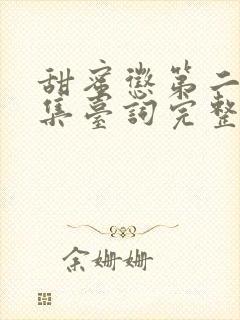 甜蜜懲第二
集臺詞完整
余姗姗